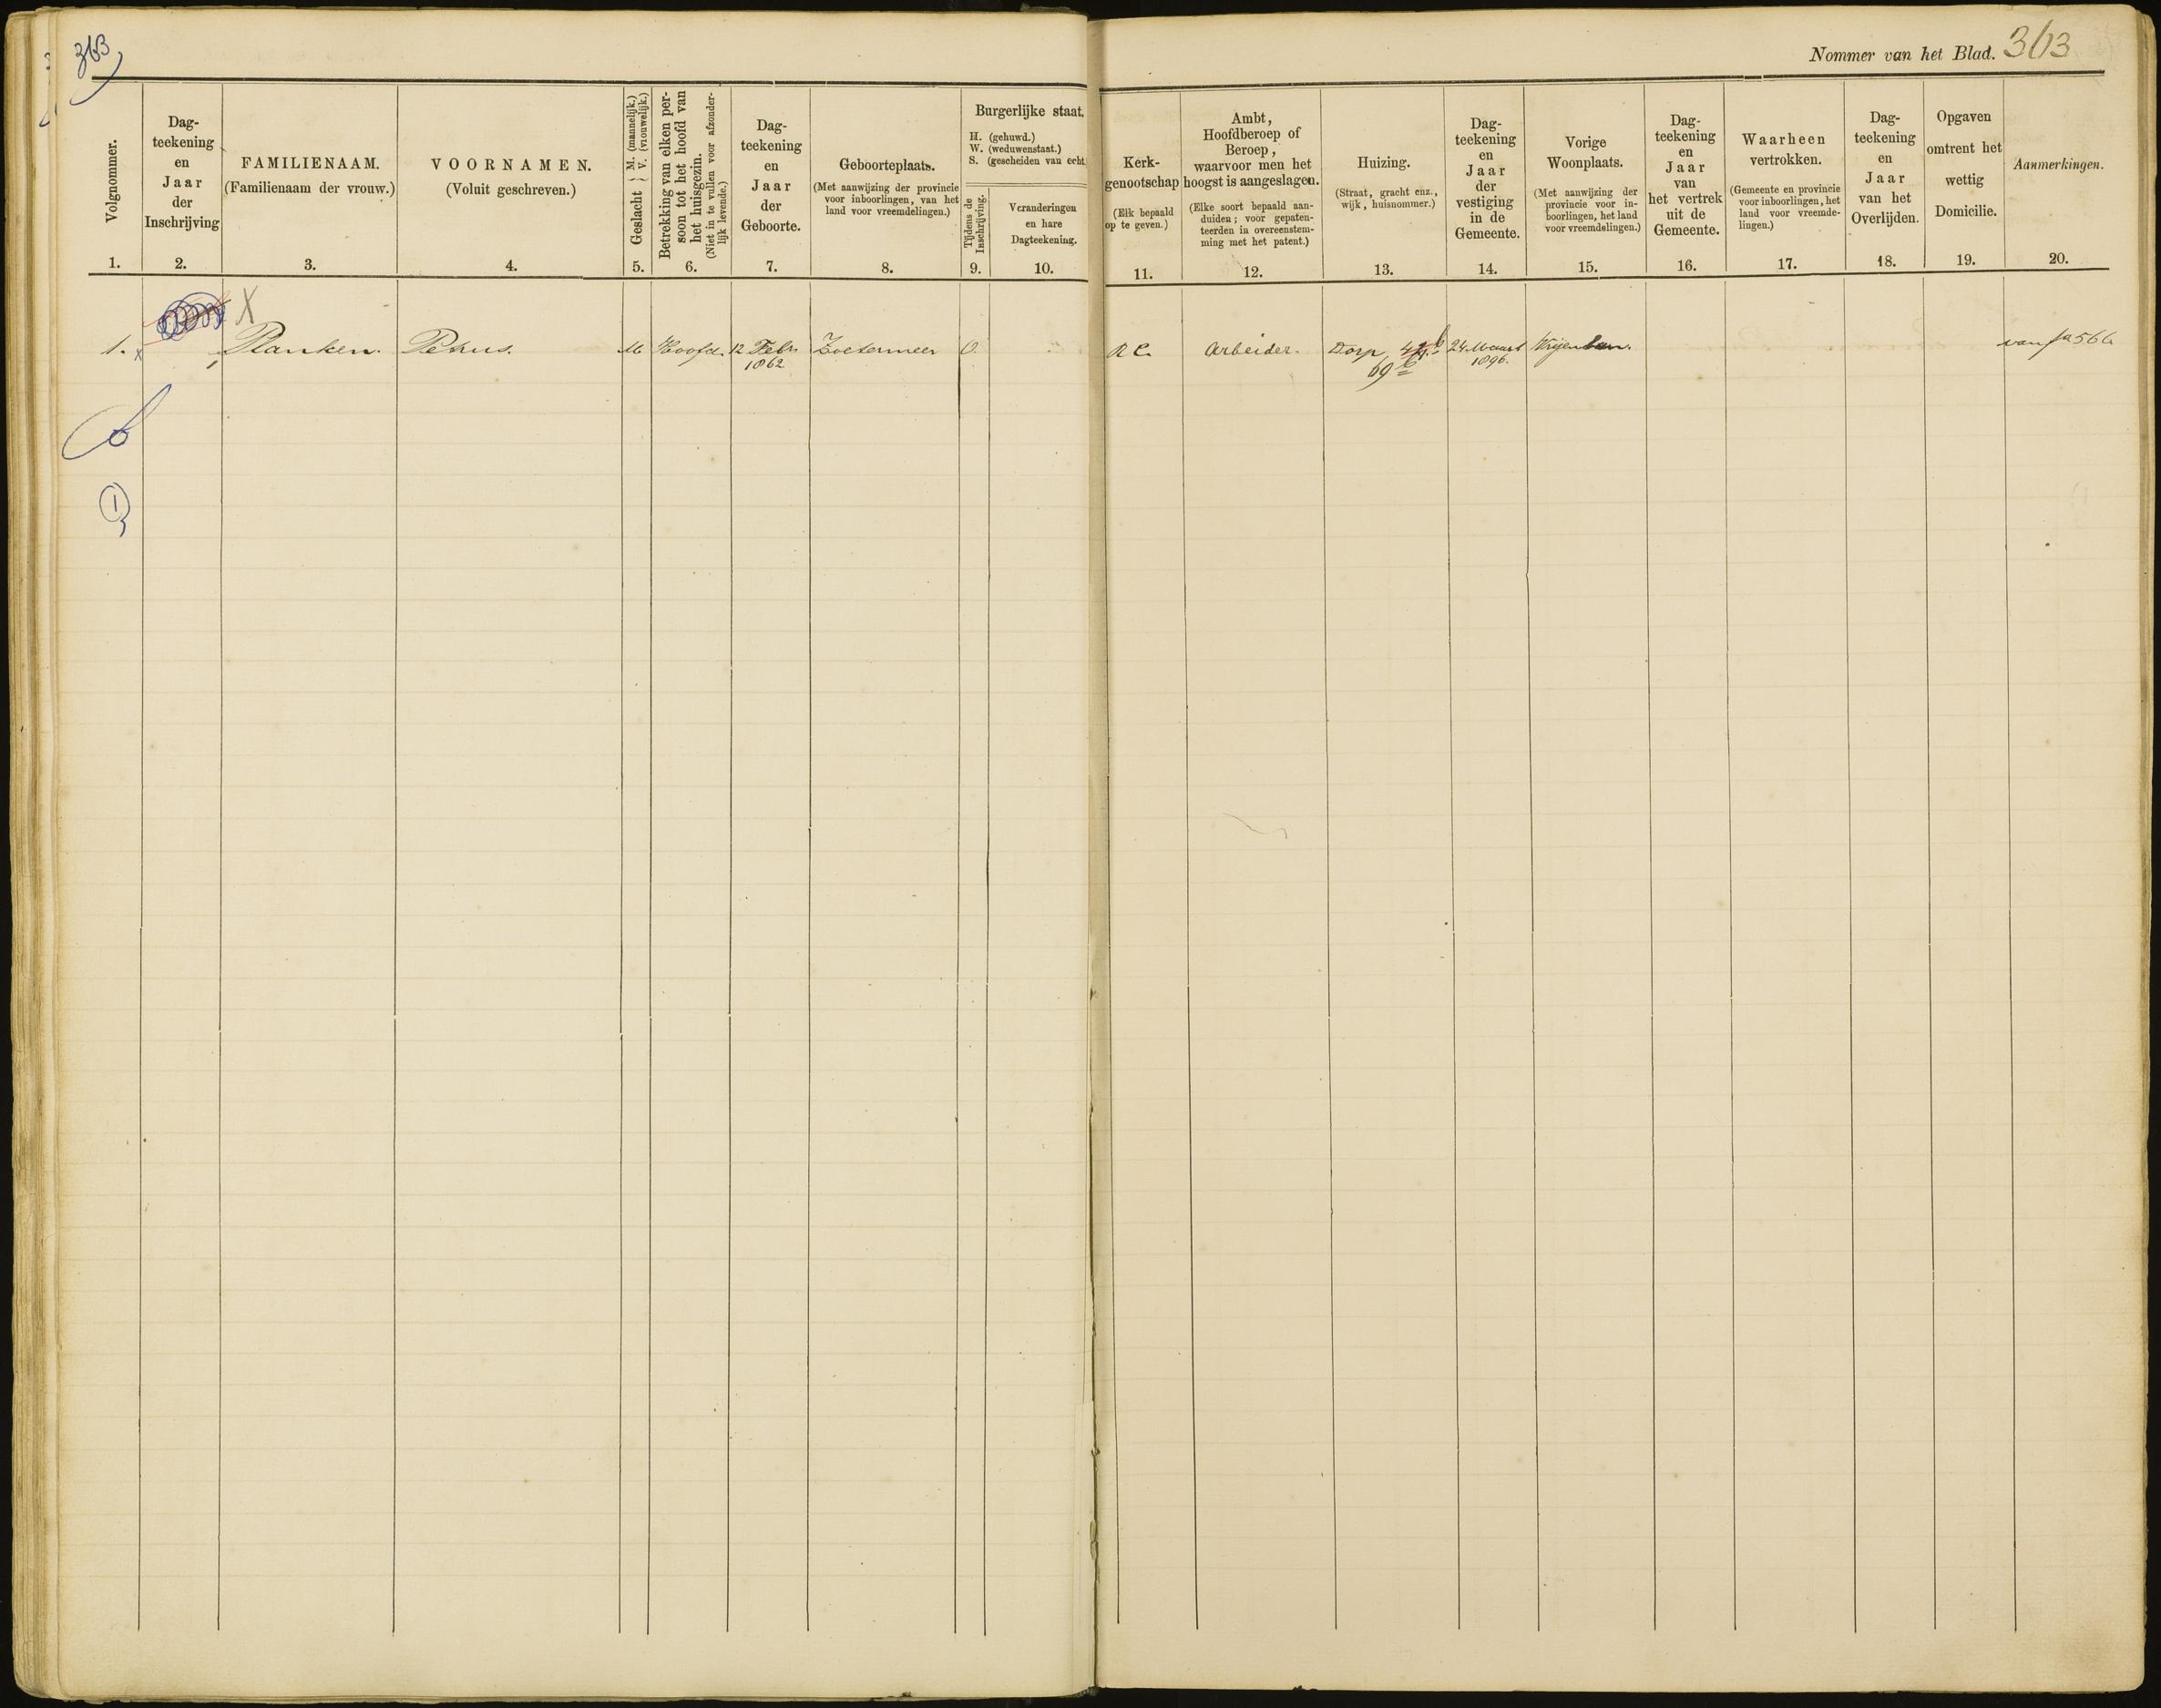 363
Nommer van het Blad. 363
Volgnommer.
1.
Dag-
teekening
en
Jaar
der
Inschrijving
2.
FAMILIENAAM.
(Familienaam der vrouw.)
3.
VOORNAMEN.
(Voluit geschreven.)
4.
Geslacht { M. (mannelijk.)
V. (vrouwelijk.)
5.
Betrekking van elken per-
soon tot het hoofd van
het huisgezin.
(Niet in te vullen voor afzonder-
lijk levende.)
6.
Dag-
teekening
en
Jaar
der
Geboorte.
7.
Geboorteplaats.
(Met aanwijzing der provincie
voor inboorlingen, van het
land voor vreemdelingen.)
8.
Burgerlijke staat.
H. (gehuwd.)
W. (weduwenstaat.)
S. (gescheiden van echt
Tijdens de
Inschrijving.
9.
Veranderingen
en hare
Dagteekening.
10.
Kerk-
genootschap
(Elk bepaald
op te geven.)
11.
Ambt,
Hoofdberoep of
Beroep,
waarvoor men het
hoogst is aangeslagen.
(Elke soort bepaald aan-
duiden; voor gepaten-
teerden in overeenstem-
ming met het patent.)
12.
Huizing.
(Straat, gracht enz.,
wijk, huisnommer.)
13.
Dag-
teekening
en
Jaar
der
vestiging
in de
Gemeente.
14.
Vorige
Woonplaats.
(Met aanwijzing der
provincie voor in-
boorlingen, het land
voor vreemdelingen.)
15.
Dag-
teekening
en
Jaar
van
het vertrek
uit de
Gemeente.
16.
Waarheen
vertrokken.
(Gemeente en provincie
voor inboorlingen, het
land voor vreemde-
lingen.)
17.
Dag-
teekening
en
Jaar
van het
Overlijden.
18.
Opgaven
omtrent het
wettig
Domicilie.
19.
Aanmerkingen.
20.
X
1. x Planken. Petrus. M Hoofd. 12 Febr. Zoetermeer O. R C. Arbeider. Dorp 24 Maart van fa 566
1862 69 b 1896.
1